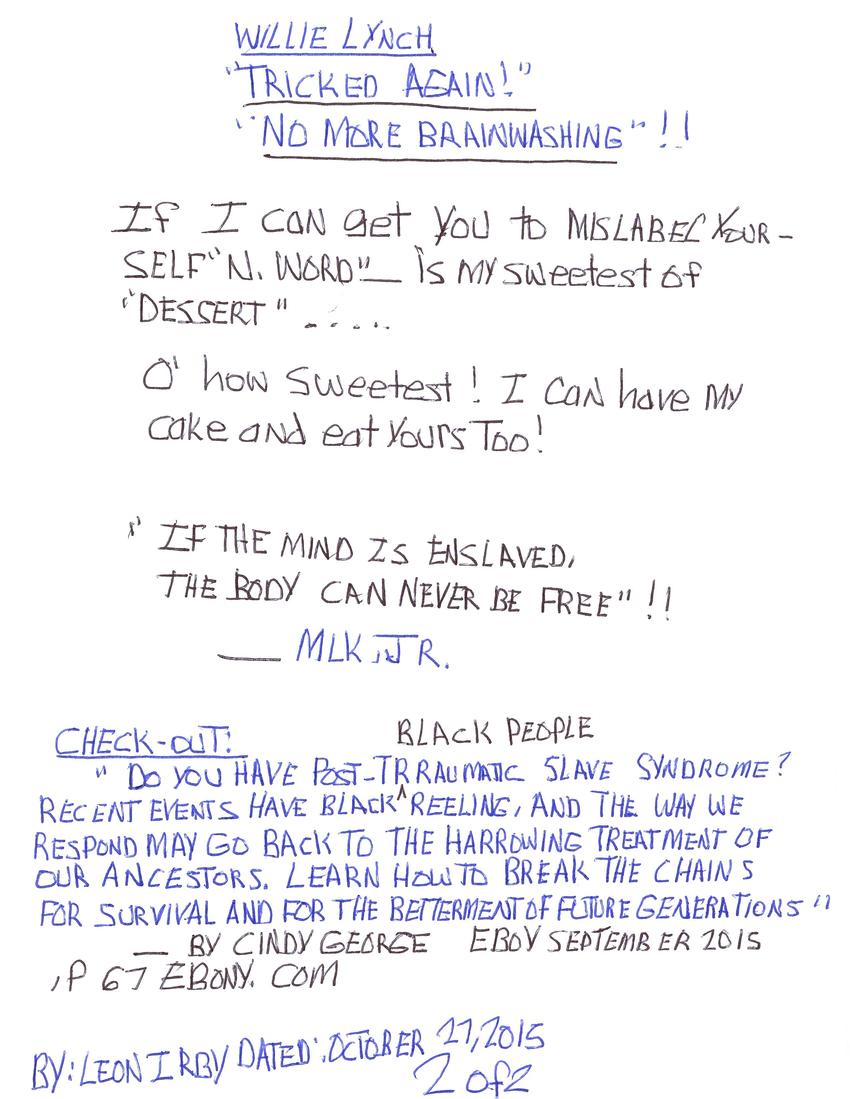 WILLIE LYNCH
"TRICKED AGAIN!"
"NO MORE BRAINWASHING"!!
If I can get you to MISLABEL YOUR-
SELF "N. WORD"__ is my sweetest of
"DESSERT" .....
O' how sweetest! I can have my
cake and eat yours Too!
"IF THE MIND IS ENSLAVED,
THE BODY CAN NEVER BE FREE"!!
— MLK, JR.
CHECK-OUT: BLACK PEOPLE
"DO YOU HAVE POST-TRRAUMATIC SLAVE SYNDROME?
RECENT EVENTS HAVE BLACK^REELING, AND THE WAY WE
RESPOND MAY GO BACK TO THE HARROWING TREATMENT OF
OUR ANCESTORS. LEARN HOW TO BREAK THE CHAINS
FOR SURVIVAL AND FOR THE BETTERMENT OF FUTURE GENERATIONS"
— BY CINDY GEORGE EBOY SEPTEMBER 2015
, P 67 EBONY. COM
BY: LEON IRBY DATED: OCTOBER 27, 2015
2 of 2